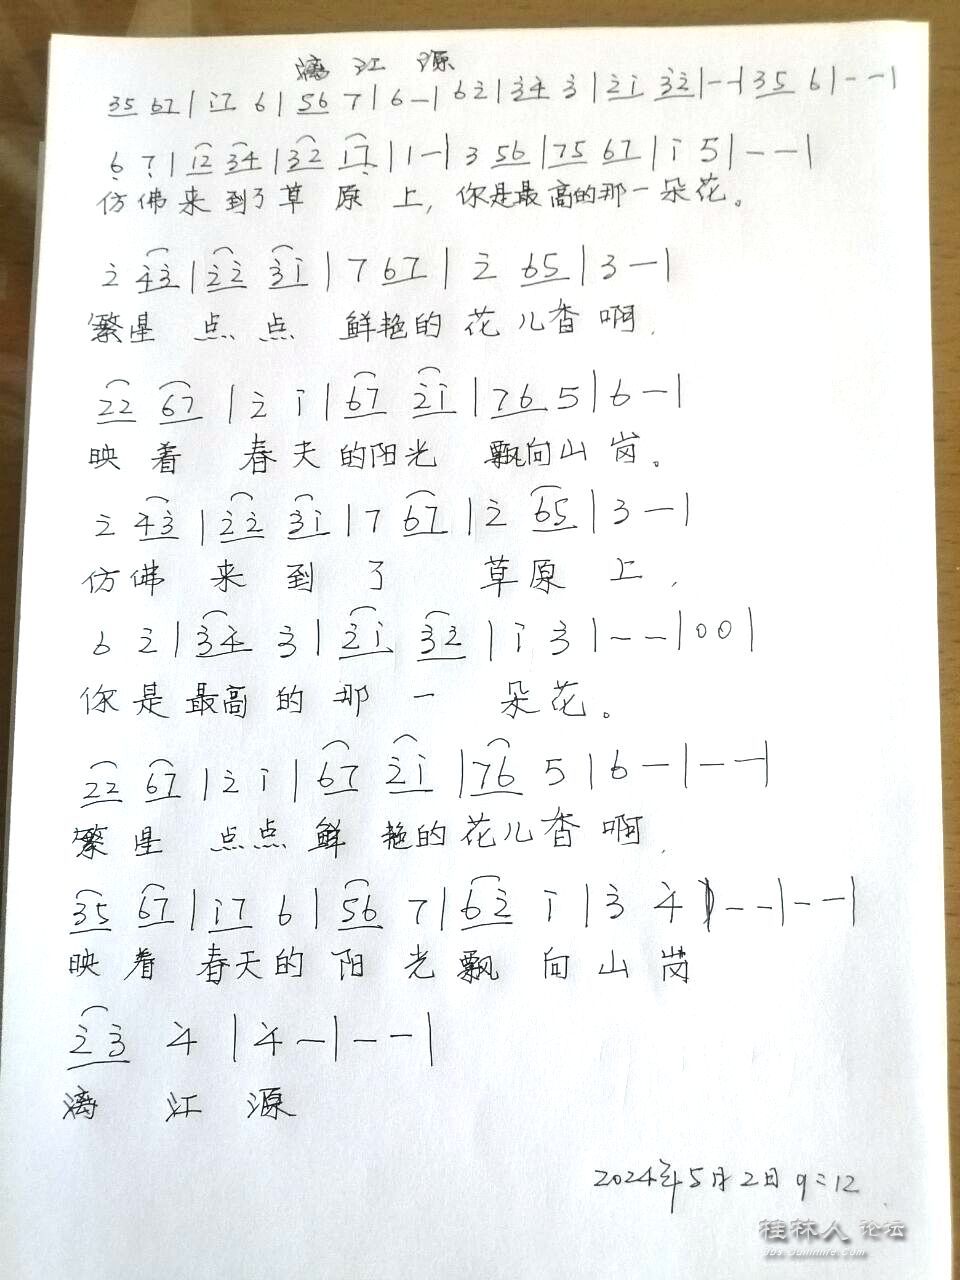 漓江源
35 67 | i7 6 | 56 7 | 6 — | 6 2 | 34 3 | 2i 32 | — — | 35 6 | — — |
6 7 | 12 34 | 32 17 | 1 — | 3 56 | 75 67 | i 5 | — — |
仿佛来到了草原上，你是最高的那一朵花。
2 43 | 22 3i | 7 67 | 2 65 | 3 — |
繁星点点 鲜艳的花儿香啊，
22 67 | 2 i | 67 2i | 76 5 | 6 — |
映着 春天的阳光 飘向山岗。
2 43 | 22 3i | 7 67 | 2 65 | 3 — |
仿佛来到了 草原上，
6 2 | 34 3 | 2i 32 | i 3 | — — | 0 0 |
你是最高的那一朵花。
22 67 | 2 i | 67 2i | 76 5 | 6 — | — — |
繁星 点点鲜艳的花儿香啊，
35 67 | i7 6 | 56 7 | 62 i | 3 4 | — — | — — |
映着 春天的阳光飘向山岗
23 4 | 4 — | — — |
漓江源
2024年5月2日 9:12
桂林人论坛
bbs.guilinlife.com